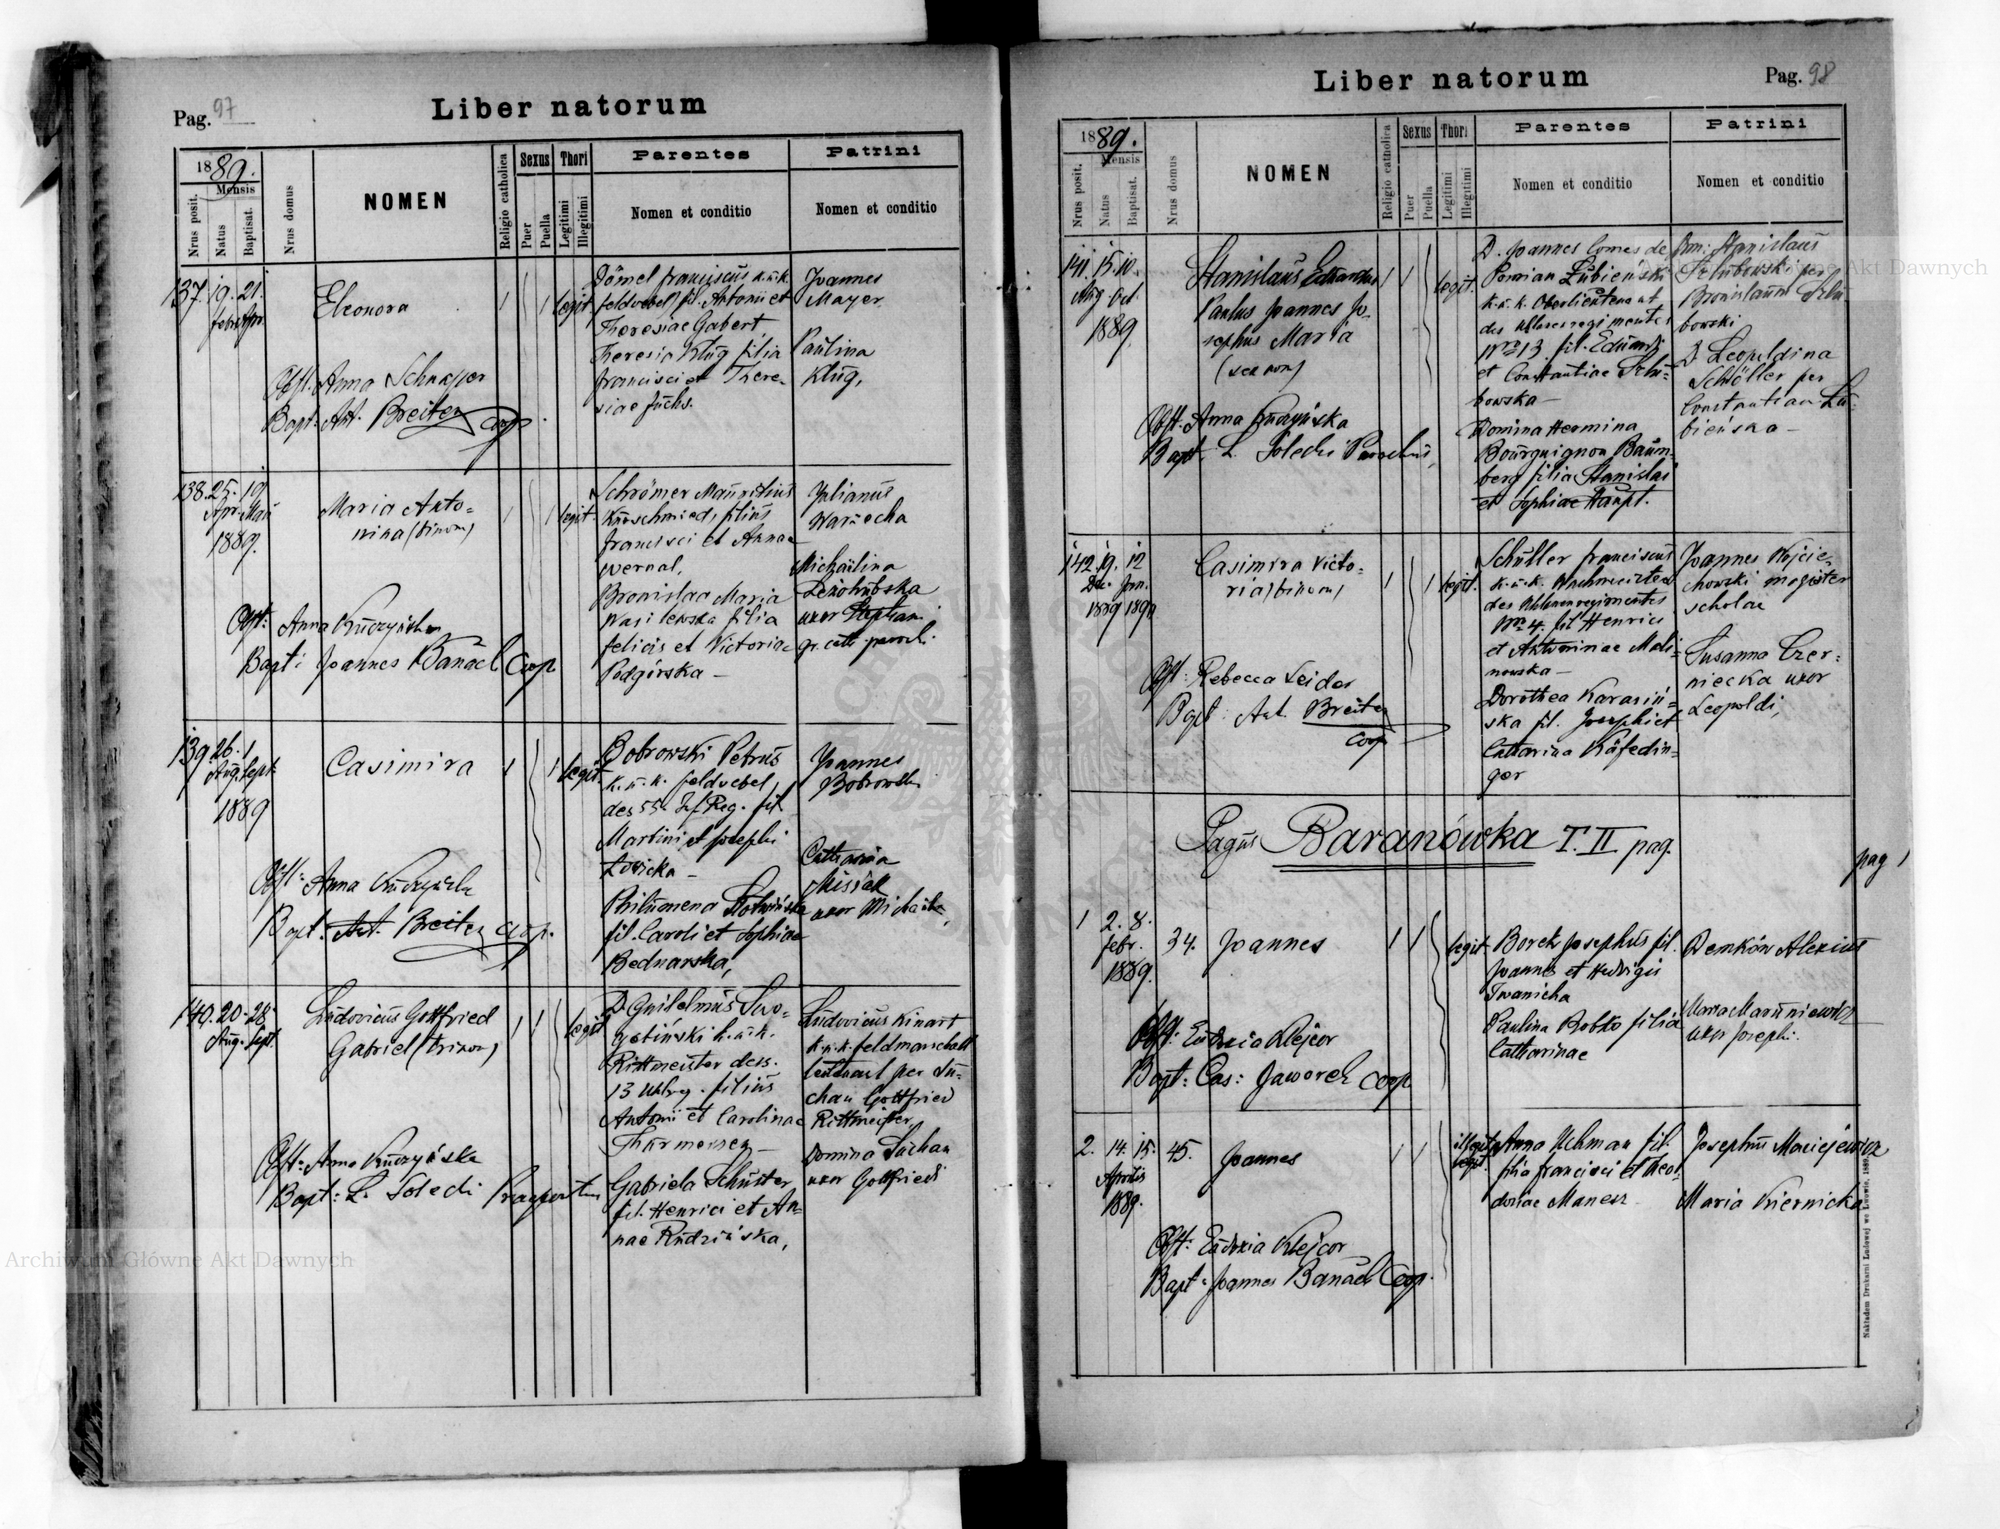 Pag. 97
Liber natorum
1889.
Mensis
Nrus posit.
Natus
Baptisat.
Nrus domus
NOMEN
Religio catholica
Sexus
Puer
Puella
Thori
Legitimi
Illegitimi
Parentes
Nomen et conditio
Patrini
Nomen et conditio
137. 19. 21.
Eleonora
1 1 legit.
Dömel Franciscus k.u.k.
feldvebel, fil. Antonii et
Theresiae Gabert
Theresia Klug filia
Francisci et There-
siae Fuchs.
Joannes
Mayer
Paulina
Klug,
Obst. Anna Schnapper
Bapt: Ant. Breiter coop
138. 25. 19
Apr. Maii
1889.
Maria Anto-
nina (binom)
1 1 legit.
Schrömer Mauritius
Kurschmied, filius
Francisci et Annae
Wernal,
Bronislaa Maria
Wasilewska filia
Felicis et Victoriae
Podgórska -
Julianus
Warzecha
Michaëlina
uxor Stephani
gr. cath. parochi
Obst: Anna Kuczyńska
Bapt: Joannes Banach Coop
139 26. 1
Aug. Sept
1889
Casimira
1 1 legit.
Bobrowski Petrus
k.u.k. feldvebel
des 55te Inf. Reg. fil.
Martini et Josephi
Łosicka -
Philumena
fil. Caroli et Sophiae
Bednarska,
Joannes
Bobrowski
Catharina
Misiak
uxor Michaëlis,
Obst: Anna Kuczyńska
Bapt: Ant. Breiter coop.
140. 20. 28
Aug. Sept.
Ludovicus Gottfried
Gabriel (trinom)
1 1 legit
D. Guilelmus Swo-
gotiński k.u.k.
Rittmeister des
13 Uhlrg. filius
Antonii et Carolinae
Gabriela Schuster
fil. Henrici et An-
nae Rudzińska,
Ludovicus Kinart
k.u.k. feldmarschall
leutenant per Su-
chan Gottfried
Rittmeister,
Domina Suchan
uxor Gottfriedi
Obst: Anna Kuczyńska
Bapt: L. Solecki Praepositus
Liber natorum
Pag. 98
1889.
Mensis
Nrus posit.
Natus
Baptisat.
Nrus domus
NOMEN
Religio catholica
Sexus
Puer
Puella
Thori
Legitimi
Illegitimi
Parentes
Nomen et conditio
Patrini
Nomen et conditio
141. 15. 10.
Aug. Oct.
1889
Stanislaus Eduardus
Paulus Joannes Jo-
sephus Maria
1 1 legit.
D. Joannes Comes de
Pomian Łubieński
k.u.k. Oberlieutenant
des Uhlanregimentes
Nro 13. fil. Eduardi
et Constantiae Szlu-
bowska -
Domina Hermina
Bourguignon Baum-
berg filia Stanislai
et Sophiae Haupt.
Dm. Stanislaus
Szlubowski per
Bronislaum Szlu
bowski
D. Leopoldina
Schöller per
Constantiam Łu-
bieńska -
Obst: Anna Kuczyńska
Bapt. L. Solecki Parochus,
142. 19. 12
Dec. Jan.
1889 1890
Casimira Victo-
ria (binom)
1 1 legit.
Schuller Franciscus
k.u.k. Wachmeister
des Uhlanenregimentes
Nro 4. fil. Henrici
et Antoninae Mali-
nowska -
Dorothea Karasiń-
ska fil. Josephi et
Catharina Käfedin-
ger
Joannes Wojcie-
chowski magister
scholae
Susanna Czer-
niecka uxor
Leopoldi,
Obst: Rebecca Seider
Bapt: Ant. Breiter
coop
Pagus Baranówka T. II pag.
pag 1
1 2. 8.
Febr.
1889.
34.
Joannes
1 1 legit.
Borek Josephus fil.
Joannis et Hedvigis
Iwanicka
Paulina Bobko filia
Catharinae
Demków Alexius
Maria Maruniewicz
uxor Josephi.
Obst: Eudoxia Klejcor
Bapt: Cas: Jaworek coop
2. 14. 15.
Aprilis
1889.
45.
Joannes
1 1
Anna Uchman fil.
filia Francisci et Theo-
dosiae Manesz
Josephus Maciejewicz
Maria Kiernicka
Obst: Eudoxia Klejcor
Bapt: Joannes Banach Coop.
Nakładem Drukarni Ludowej we Lwowie, 1889.
Archiwum Główne Akt Dawnych